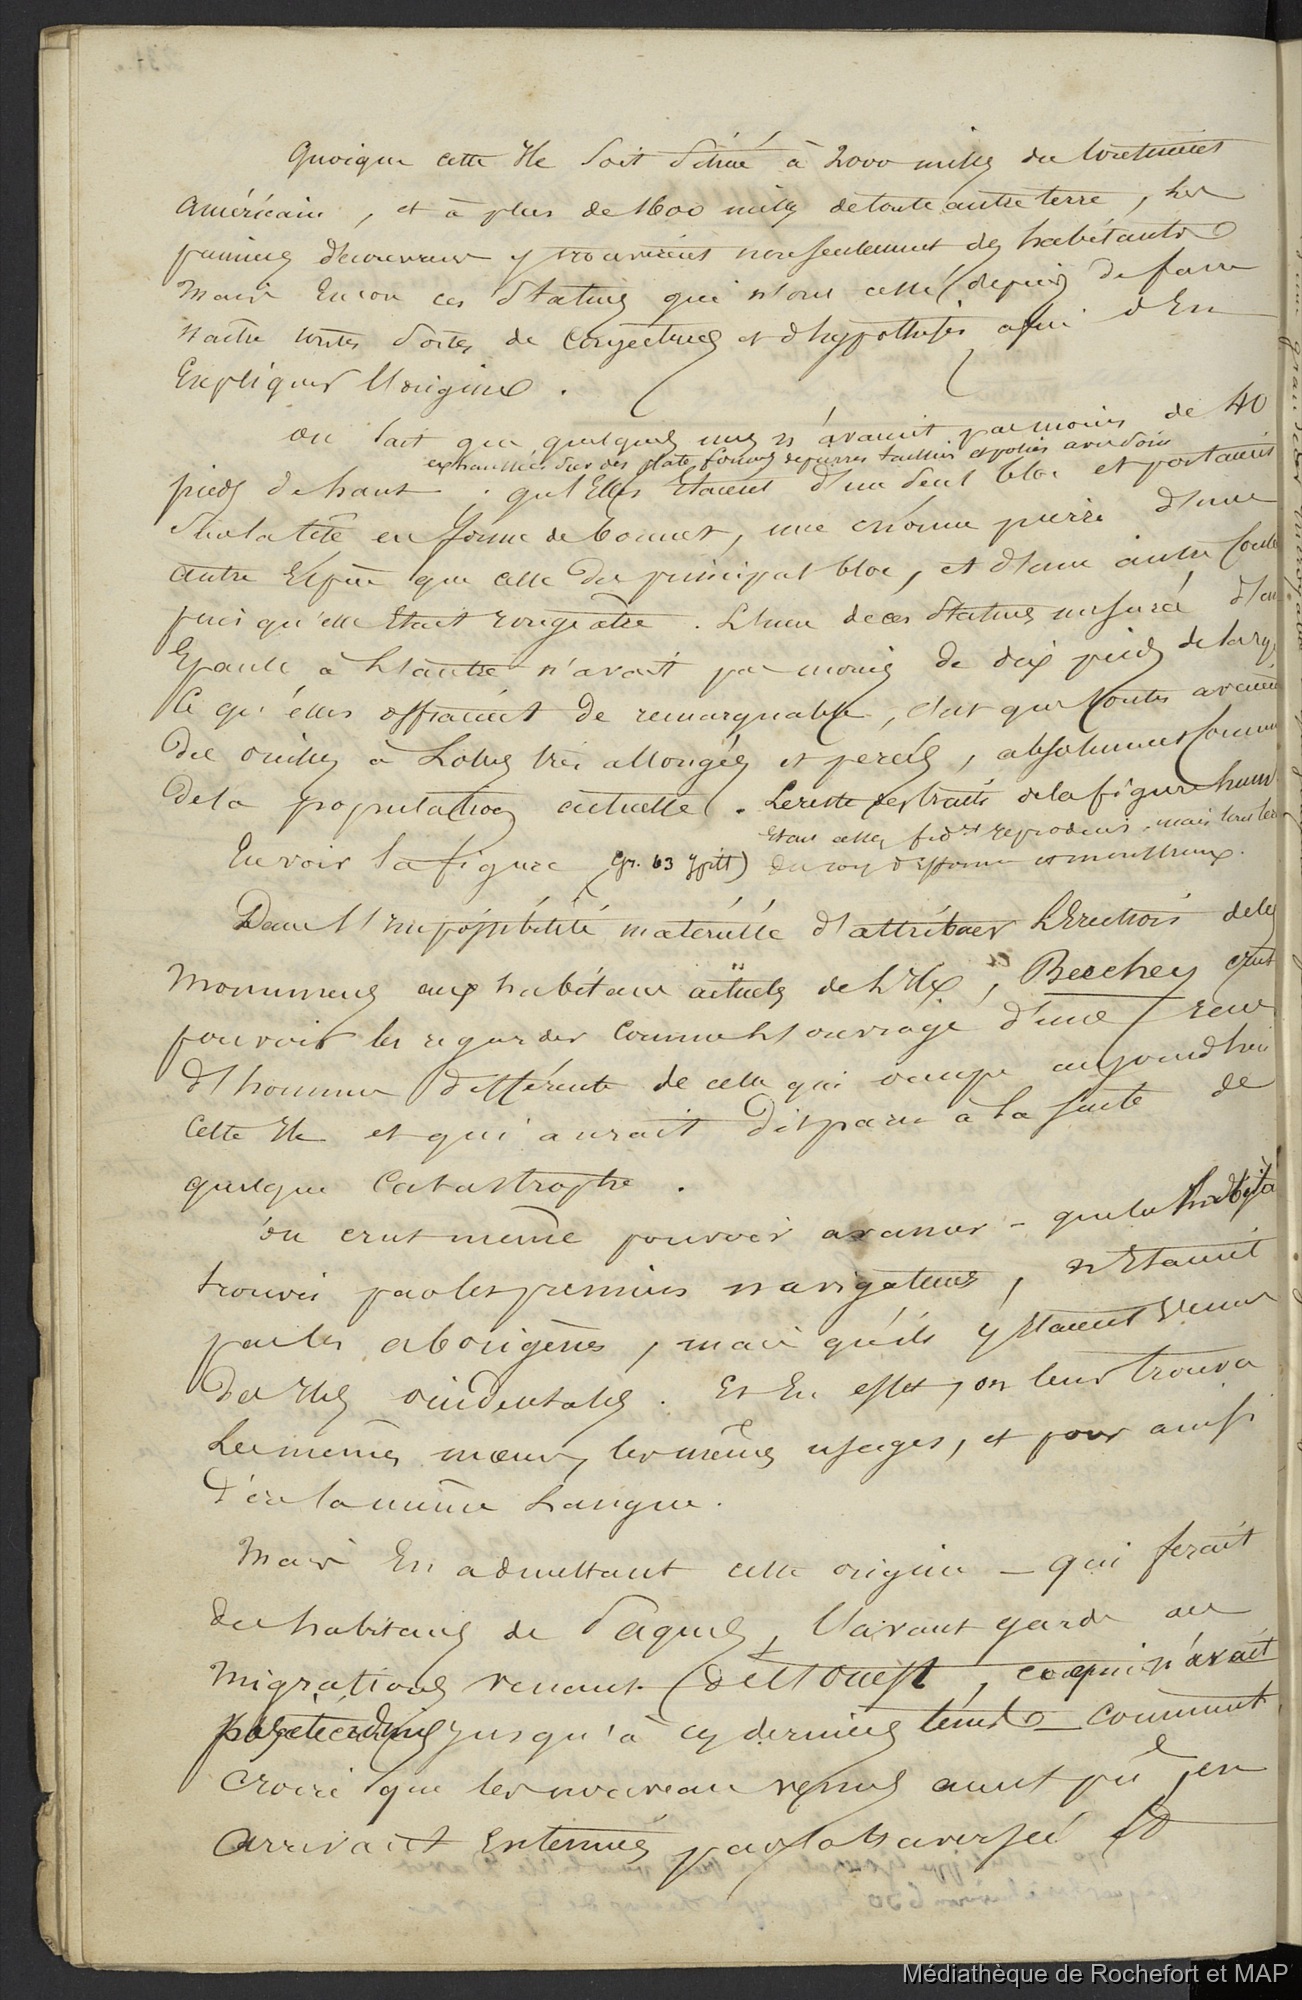 Quoique cette Ile soit située à 2000 milles du continent
américain, et à plus de 1600 milles de toute autre terre, les
premiers découvreurs y trouvèrent non seulement des habitants
mais encore ces statues qui n'ont cessé depuis de faire
naître toutes sortes de conjectures et d'hypothèses afin d'en
expliquer l'origine.
on sait que quelques unes n'avaient pas moins de 40
exhaussées sur des plate formes de pierres taillées et polies avec soin
pieds de haut. qu'elles étaient d'un seul bloc et portaient
sur la tête en forme de bonnet, une énorme pierre d'une
autre espèce que celle du principal bloc, et d'une autre coule
puis qu'elle était rougeâtre. L'une de ces statues mesurée d'un
Epaule à l'autre n'avait pas moins de dix pieds de large
Ce qu'elles offraient de remarquable, c'est que toutes avaient
des oreilles à Lobes très allongés et percés, absolument comme
de la population actuelle. Le reste des traits de la figure hum
étant assez fidt reproduits, mais
En voir la figure (gr. 63 ) du corps difforme et monstrueux.
Dans l'impossibilité matérielle d'attribuer l'Erection de ces
monumens aux habitans actuels de l'Ile, Beechey crut
pouvoir les regarder comme l'ouvrage d'une race
d'hommes différente de celle qui occupe aujourdhui
Cette Ile et qui aurait disparu à la suite de
quelque catastrophe.
on crut même pouvoir avancer - que les habita
trouvés par les premiers navigateurs, n'Etaient
pas les aborigènes, mais qu'ils y étaient venus
des Iles occidentales. Et En effet, on leur trouva
Les mêmes mœurs, les mêmes usages, et pour ainsi
dire la même Langue.
Mais En admettant cette origine - qui ferait
des habitans de Pâques, l'avant garde des
migrations venant de l'Ouest, ce qui n'avait
jusqu'à ces derniers tems - comment
croire que les nouveau venus aient pu, en
arrivant Exténués par la traversée et
Médiathèque de Rochefort et MAP